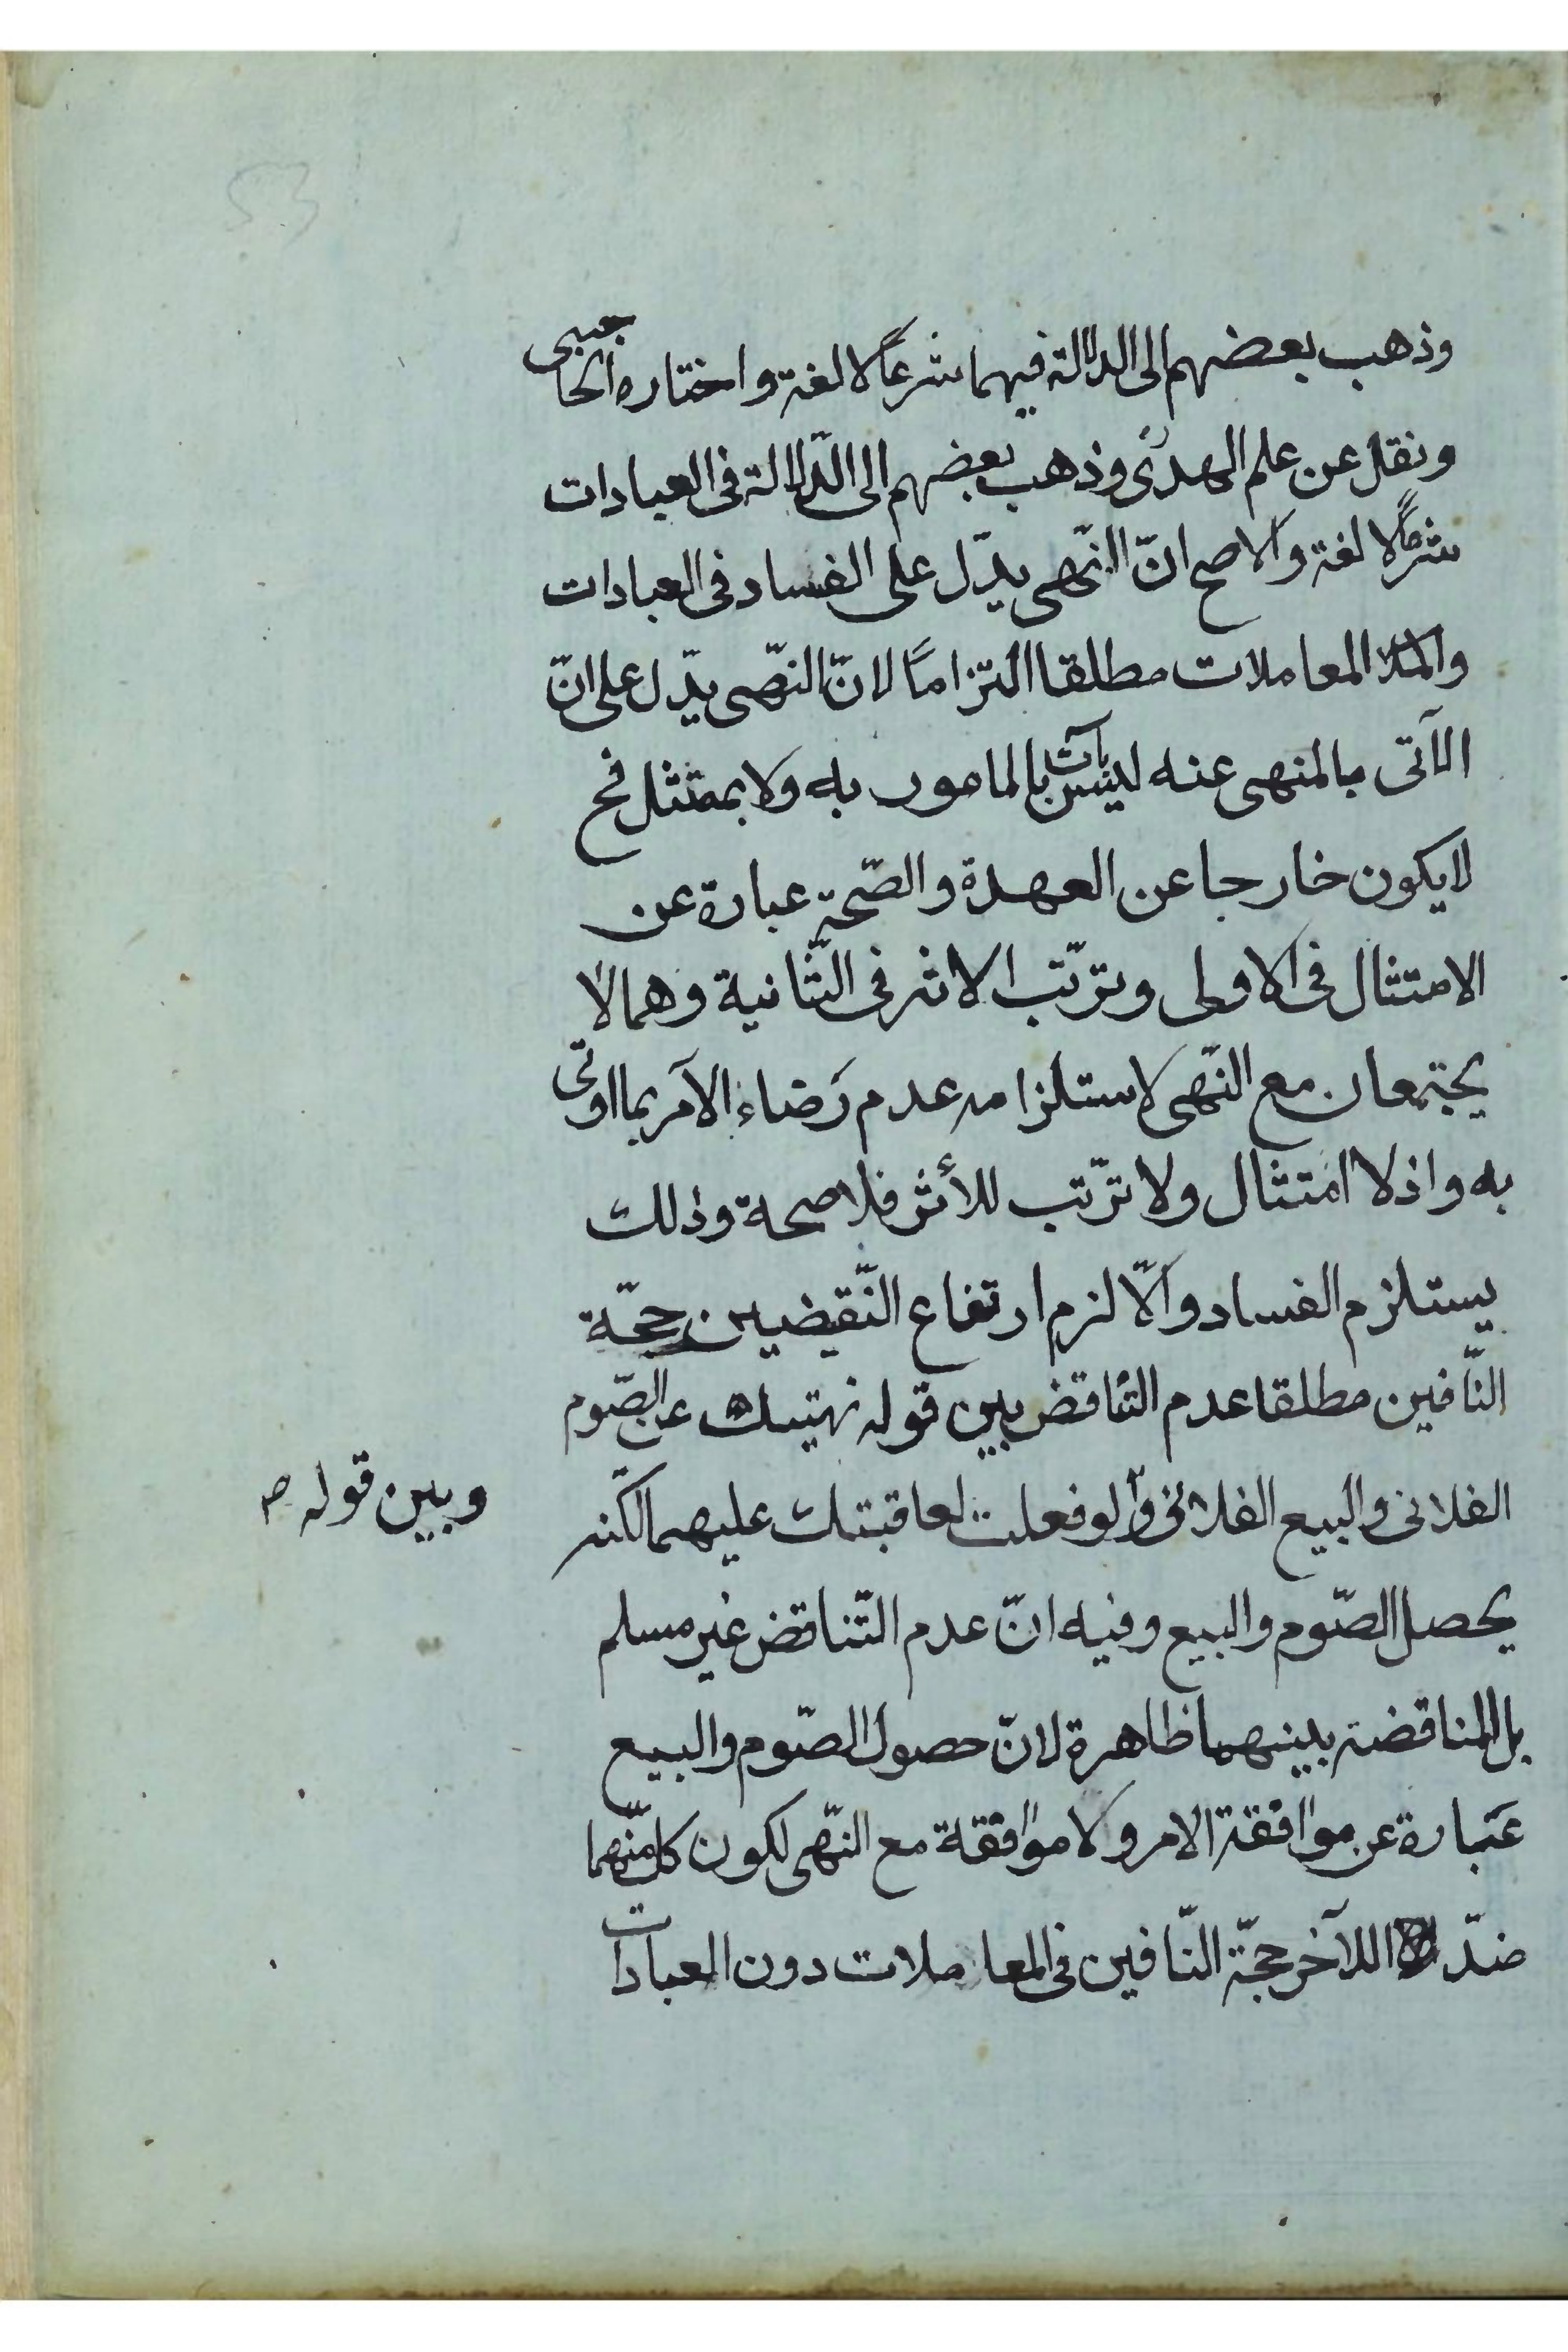 53
وذهب بعضهم الى الدلالة فيهما شرعاً لا لغة واختاره الحاجبى
ونقل عن علم الهدى وذهب بعضهم الى الدّلالة فى العبادات
شرعاً لا لغة والاصح انّ النّهى يدّل على الفساد فى العبادات
والمعاملات مطلقا التزاماً لانّ النّهى يدّل على انّ
الآتى بالمنهى عنه ليس بآت بالمامور به ولا بممتثل فح
لا يكون خارجا عن العهدة والصّحة عبارة عن
الامتثال فى الاولى وترتّب الاثر فى الثّانية وهما لا
يجتمعان مع النّهى لاستلزامه عدم رَضاء الآمر بما اوتى
به واذ لا امتثال ولا ترتّب للأثر فلا صحة وذلك
يستلزم الفساد والّا لزم ارتفاع النّقيضين حجّة
النّافين مطلقا عدم التناقض بين قوله نهيتك عن الصّوم
الفلانى والبيع الفلانى ولو فعلت لعاقبتك عليهما لكنه
وبين قوله ص
يحصل الصّوم والبيع وفيه انّ عدم التّناقض غير مسلم
بل المناقضة بينهما ظاهرة لانّ حصول الصّوم والبيع
عبارة عن موافقة الامر ولا موافقة مع النّهى لكون كل منهما
ضدّ اللآخر حجّة النّافين فى المعاملات دون العبادات